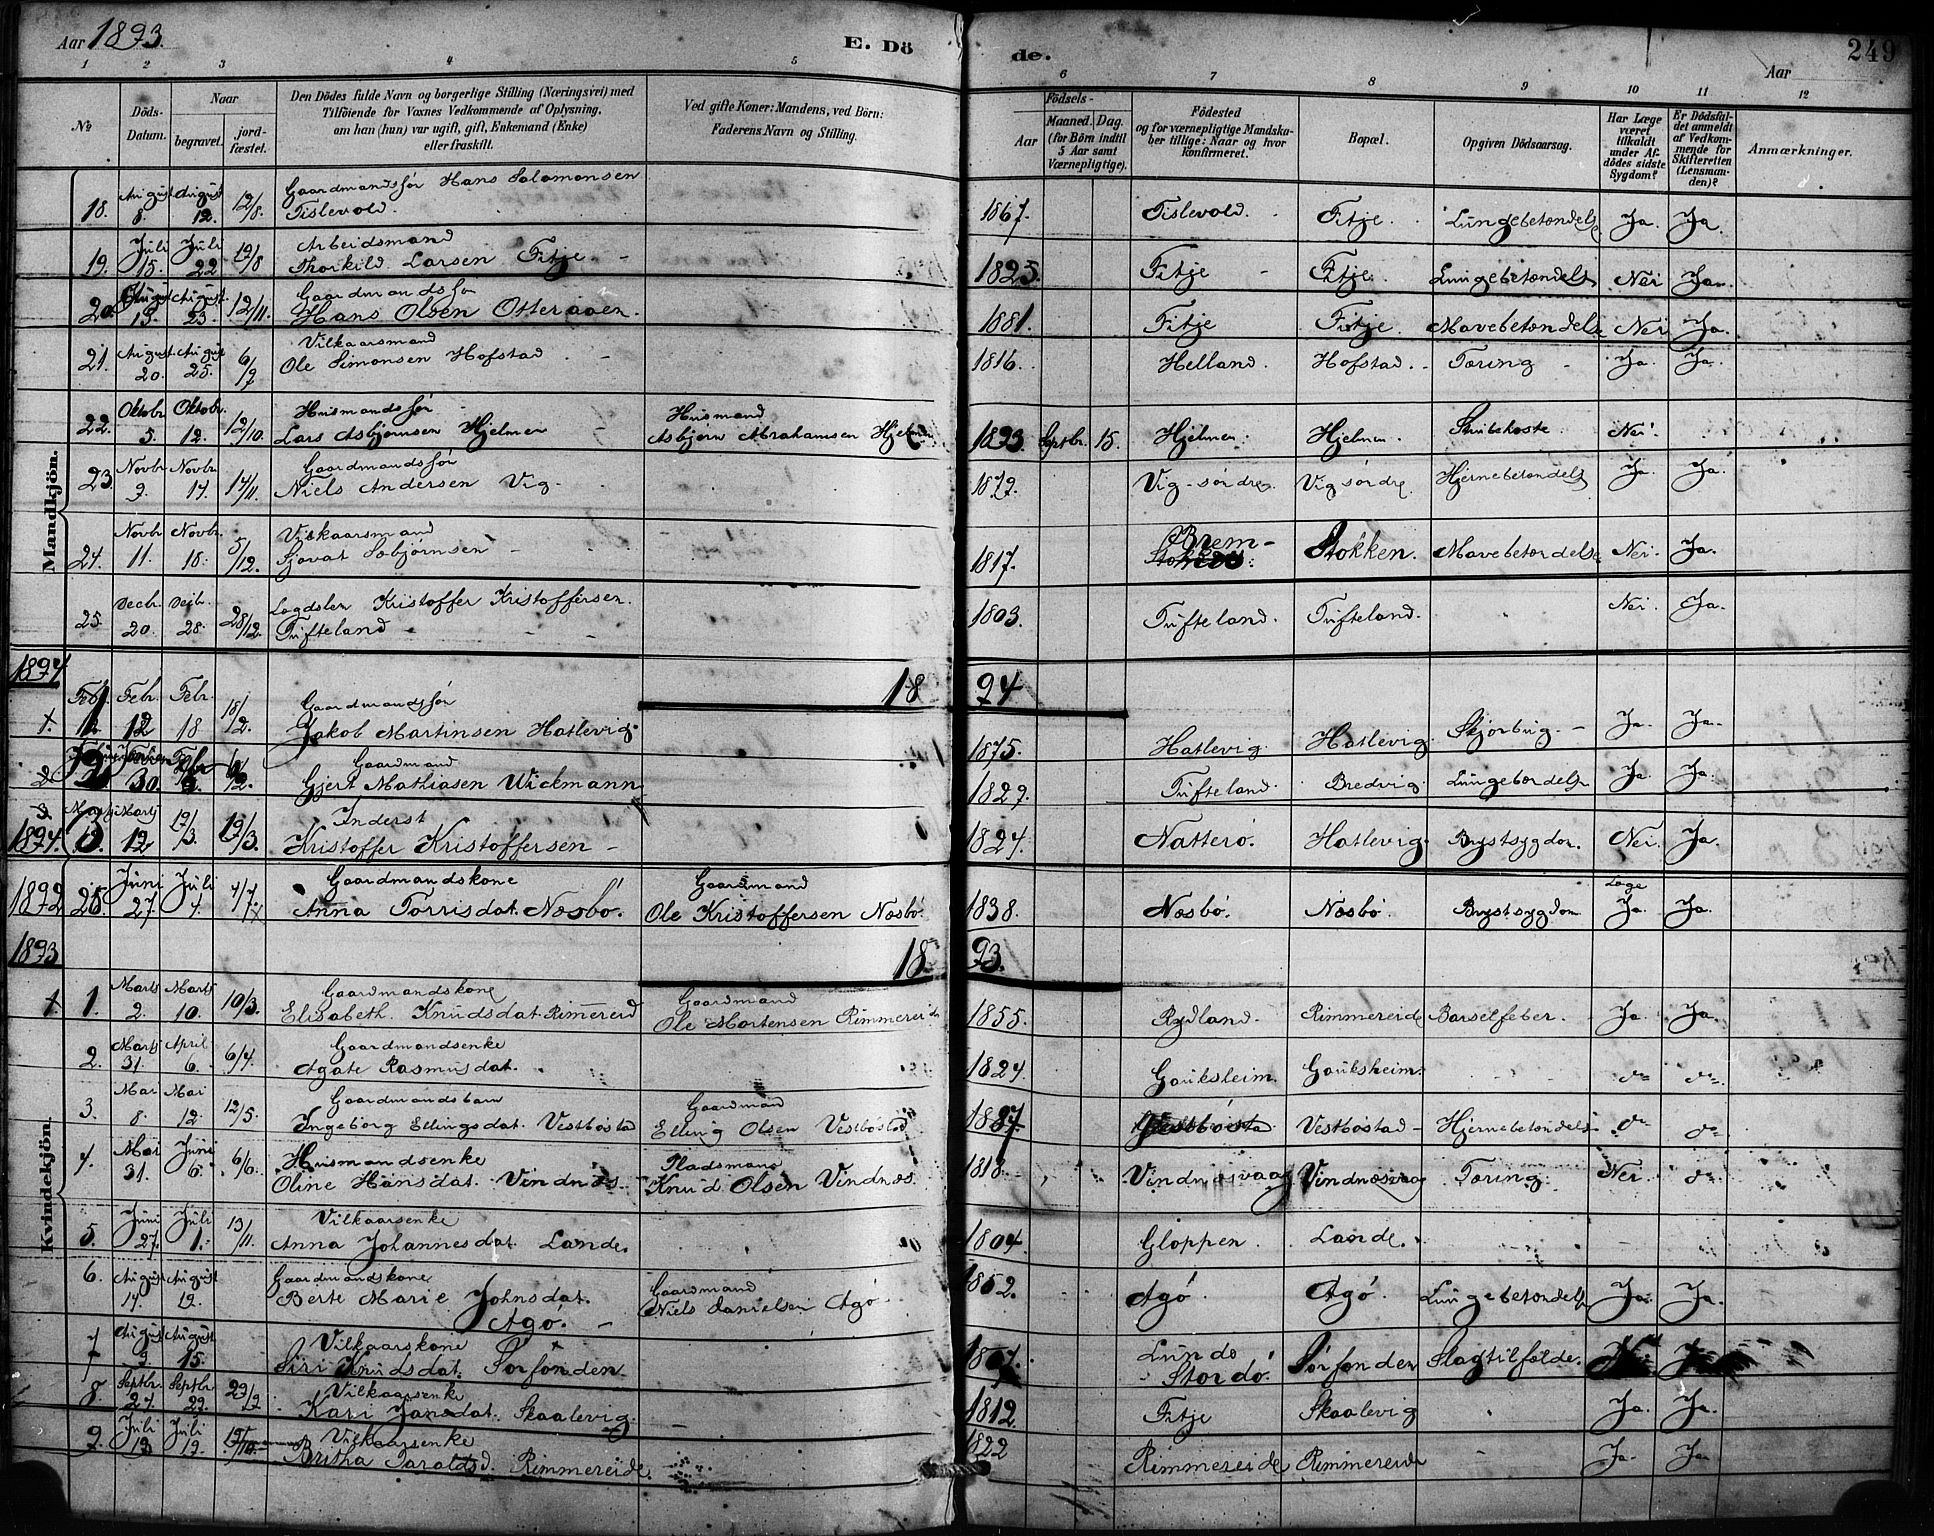 Aar 1893.
E. Dö
de.
249
Aar
1 2 3 4 5 6 7 8 9 10 11 12
No
Döds-Datum.
Naar
begravet.
jord-fæstet.
Den Dödes fulde Navn og borgerlige Stilling (Næringsvei) med
Tilföiende for Voxnes Vedkommende af Oplysning,
om han (hun) var ugift, gift, Enkemand (Enke)
eller fraskilt.
Ved gifte Koner: Mandens, ved Börn:
Faderens Navn og Stilling.
Födsels-
Aar
Maaned. Dag.
(for Börn indtil
5 Aar samt
Værnepligtige).
Födested
og for værnepligtige Mandska-
ber tillige: Naar og hvor
konfirmeret.
Bopæl.
Opgiven Dödsaarsag.
Har Læge
været
tilkaldt
under Af-
dödes sidste
Sygdom?
Er Dödsfal-
det anmeldt
af Vedkom-
mende for
Skifteretten
(Lensman-
den)?
Anmærkninger.
Mandkjön.
18. August 8. August 12. 12/8. Gaardmandssør Hans Salomonsen
Tislevold. 1867. Tislevold. Fitje. Lungebetændelse Ja. Ja.
19. Juli 15. Juli 22 Arbeidsmand
Thorkild Larsen Fitje 1825. Fitje Fitje. Lungebetændels Nei Ja.
20. August 23. 12/11. Gaardmandssør
Hans Olsen Otteraaen. 1881. Fitje Fitje. Mavebetændelse Nei Ja.
21. August 20. August 25. 6/9 Vilkaarsmand
Ole Simonsen Hofstad 1816. Helland. Hofstad. Tæring Ja. Ja.
22. Oktobr. 5. Oktobr. 12. 12/10. Husmandssør
Lars Asbjørnsen Hjelmen Husmand
Asbjørn Abrahamsen Hjelmen 1893. Septbr. 15. Hjelmen. Hjelmen. Nei.
23. Novbr. 9. Novbr. 14. 14/11. Gaardmandssør
Niels Andersen Vig. 1879. Vig søndre. Vig søndre. Hjernebetændels Ja. Ja.
24. Novbr. 11. Novbr. 18. 5/12. Vilkaarsmand
Sjovat Sæbjørnsen 1817. Brem- Stokken. Mavebetændelse Nei. Ja.
25. Decbr. 20. Decbr. 28. 28/12. Lægdslem Kristoffer Kristoffersen.
Tufteland 1803. Tufteland. Tufteland. Nei. Ja.
1894
18 94
1. Febr. 12 Febr. 18 18/2. Gaardmandssør
Jakob Martinsen Hatlevig. 1875. Hatlevig. Hatlevig. Skjørbug. Ja. Ja.
2 30. Febr Gaardmand
Gjert Mathiasen Wickmann 1829. Tufteland. Bredvig. Lungebetændelse Ja. Ja.
1894. 3. Marts 12 19/3. 19/3. Inderst
Kristoffer Kristoffersen 1824. Natterø. Hatlevig. Brystsygdom. Nei. Ja.
1892 25. Juni 27. Juli 4. 4/7. Gaardmandskone
Anna Torrisdat. Næsbø. Gaardmand
Ole Kristoffersen Næsbø. 1838. Næsbø. Næsbø. Brystsygdom Læge
Ja. Ja.
1893
18 93.
Kvindekjön.
1. Marts 2. Marts 10. 10/3. Gaardmandskone
Elisabeth Knudsdat. Rimmereid Gaardmand
Ole Mortensen Rimmereide 1855. Rydland. Rimmereide Barselfeber. Ja. Ja.
2. Marts 31. April 6. 6/4. Gaardmandsenke
Agate Rasmusdat. 1824. Gauksheim. Gauksheim.
3. Mai 8. Mai 12. 12/5. Gaardmandsbarn
Ingeborg Ellingsdat. Vestbøstad Gaardmand
Elling Olsen Vestbøstad 1887 Vestbøstad Vestbøstad Hjernebetændels
4. Mai 31. Juni 6. 6/6. Husmandsenke
Oline Hansdat. Vindnæs. Pladsmand
Knud Olsen Vindnæs 1818. Vindnæsvaag Vindnæsvaag Tæring Nei.
5. Juni 27. Juli 1. 13/11. Vilkaarsenke
Anna Johannesdat. Lande. 1804. Gloppen. Lande.
6. August 14. August 19. Gaardmandskone
Berte Marie Johnsdat.
Agø. Gaardmand
Niels Danielsen Agø. 1852. Agø. Agø. Lungebetændelse Ja. Ja.
7 August 9. August 15. Vilkaarskone
Siri Knudsdat. Sørfonden. Lunde
Stordø. Sørfonden Slagtilfælde.
8. Septbr. 24. Septbr. 29. 29/9. Vilkaarsenke
Kari Jansdat. Skaalevig. 1812. Fitje Skaalevig Ja. Ja.
9. Juli 13 Juli 19. Vilkaarsenke
Britha Haraldsd. Rimmereide. 1822 Rimmereide Rimmereide Ja. Ja.